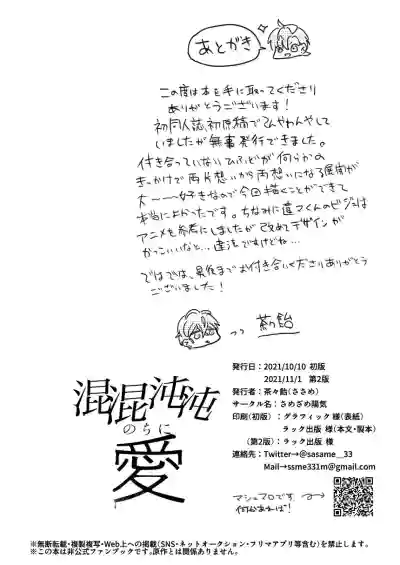 あとがき
この度は本を手に取ってくださり
ありがとうございます！
初同人誌、初原稿でてんやわんやして
いましたが無事発行できました。
付き合っていないひふどが何らかの
きっかけで両片想いから両想いになる展開が
大〜〜〜好きなので今回描くことができて
本当によかったです。ちなみに道マくんのビジュは
アニメを参考にしましたが改めてデザインが
かっこいいなと…違法ですけどね…
ではでは、最後までお付き合いくださりありがとう
ございました！
混混沌沌
のちに
愛
発行日：2021/10/10 初版
2021/11/1 第2版
発行者：茶々飴（ささめ）
サークル名：さめざめ陽気
印刷（初版）：グラフィック 様（表紙）
ラック出版 様（本文・製本）
（第2版）：ラック出版 様
連絡先：Twitter→@sasame__33
Mail→ssme331m@gmail.com
マシュマロです
何かあれば！
※無断転載・複製複写・Web上への掲載（SNS・ネットオークション・フリマアプリ等含む）を禁止します。
※この本は非公式ファンブックです。原作とは関係ありません。